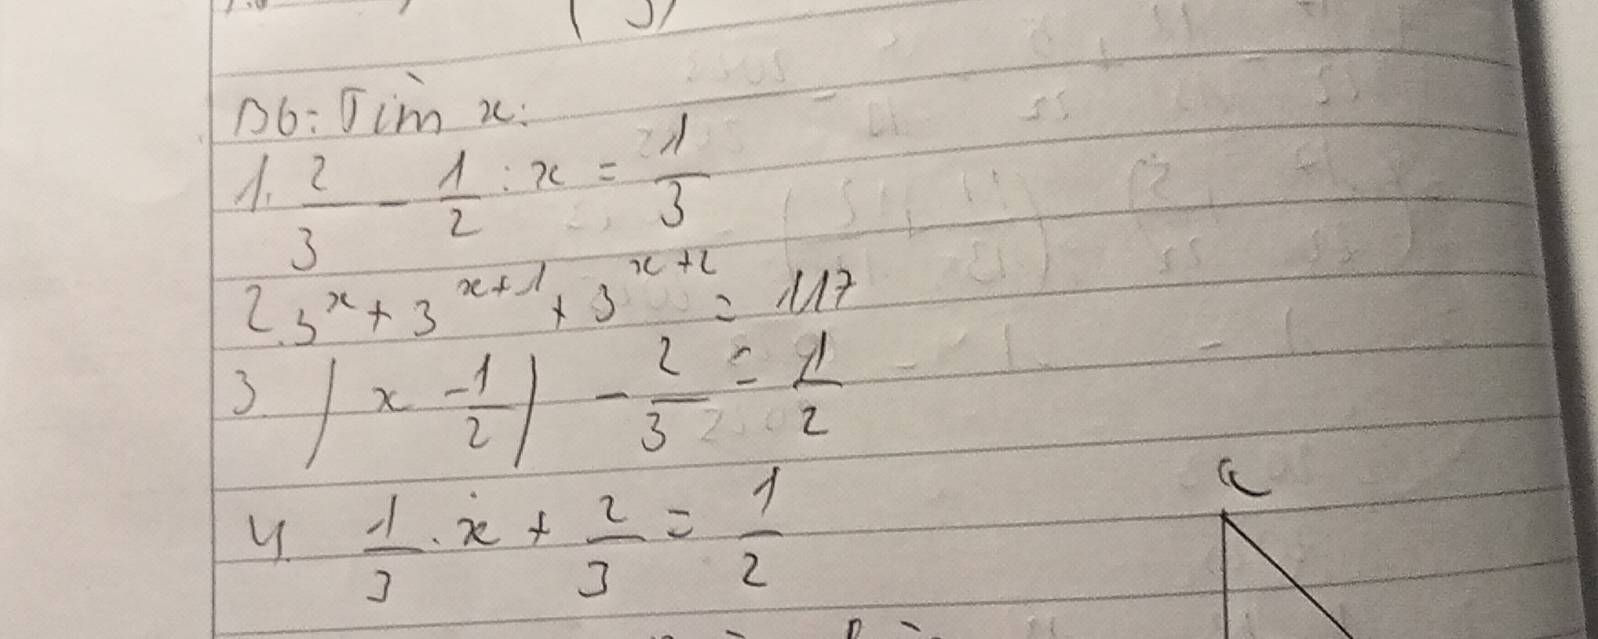 B6: Tìm x:
1. 2/3 - 1/2 : x = 1/3
2. 3^x + 3^(x+1) + 3^(x+2) = 117
3. |x - 1/2| - 2/3 = 1/2
4. 1/3 . x + 2/3 = 1/2